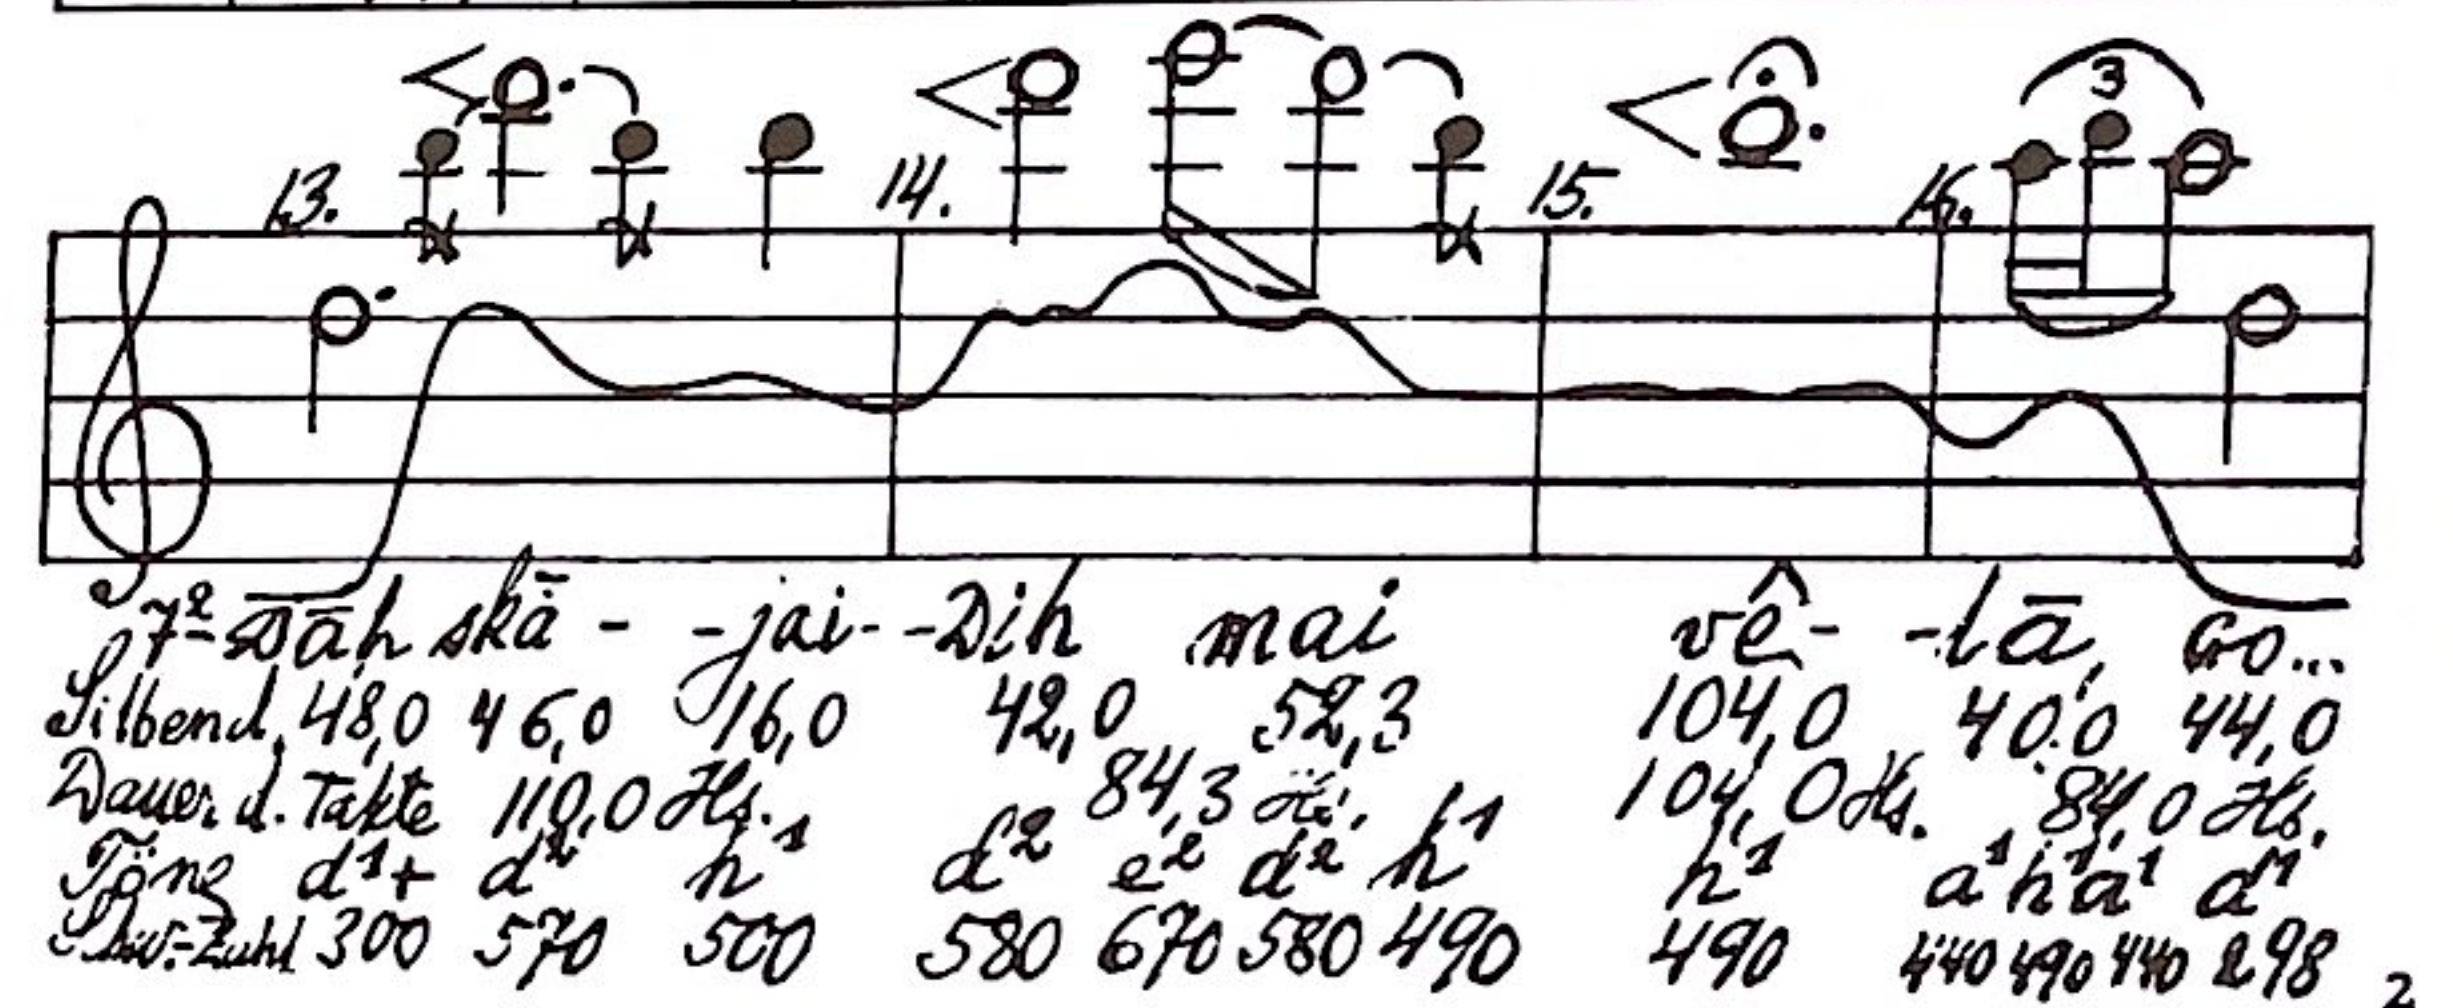 3
13. 14. 15. 16.
Dāh skā - -jai- -Dih mai vê- -lā, Go...
Silbend. 48,0 46,0 16,0 42,0 52,3 104,0 40,0 44,0
Dauer d. Takte 110,0 Hs. 84,3 Hs. 104,0 Hs. 84,0 Hs.
Töne d¹+ d² h¹ d² e² d² h¹ h¹ a¹ h¹ a¹ d¹
Schw.-Zahl 300 570 500 580 670 580 490 490 440 490 440 298